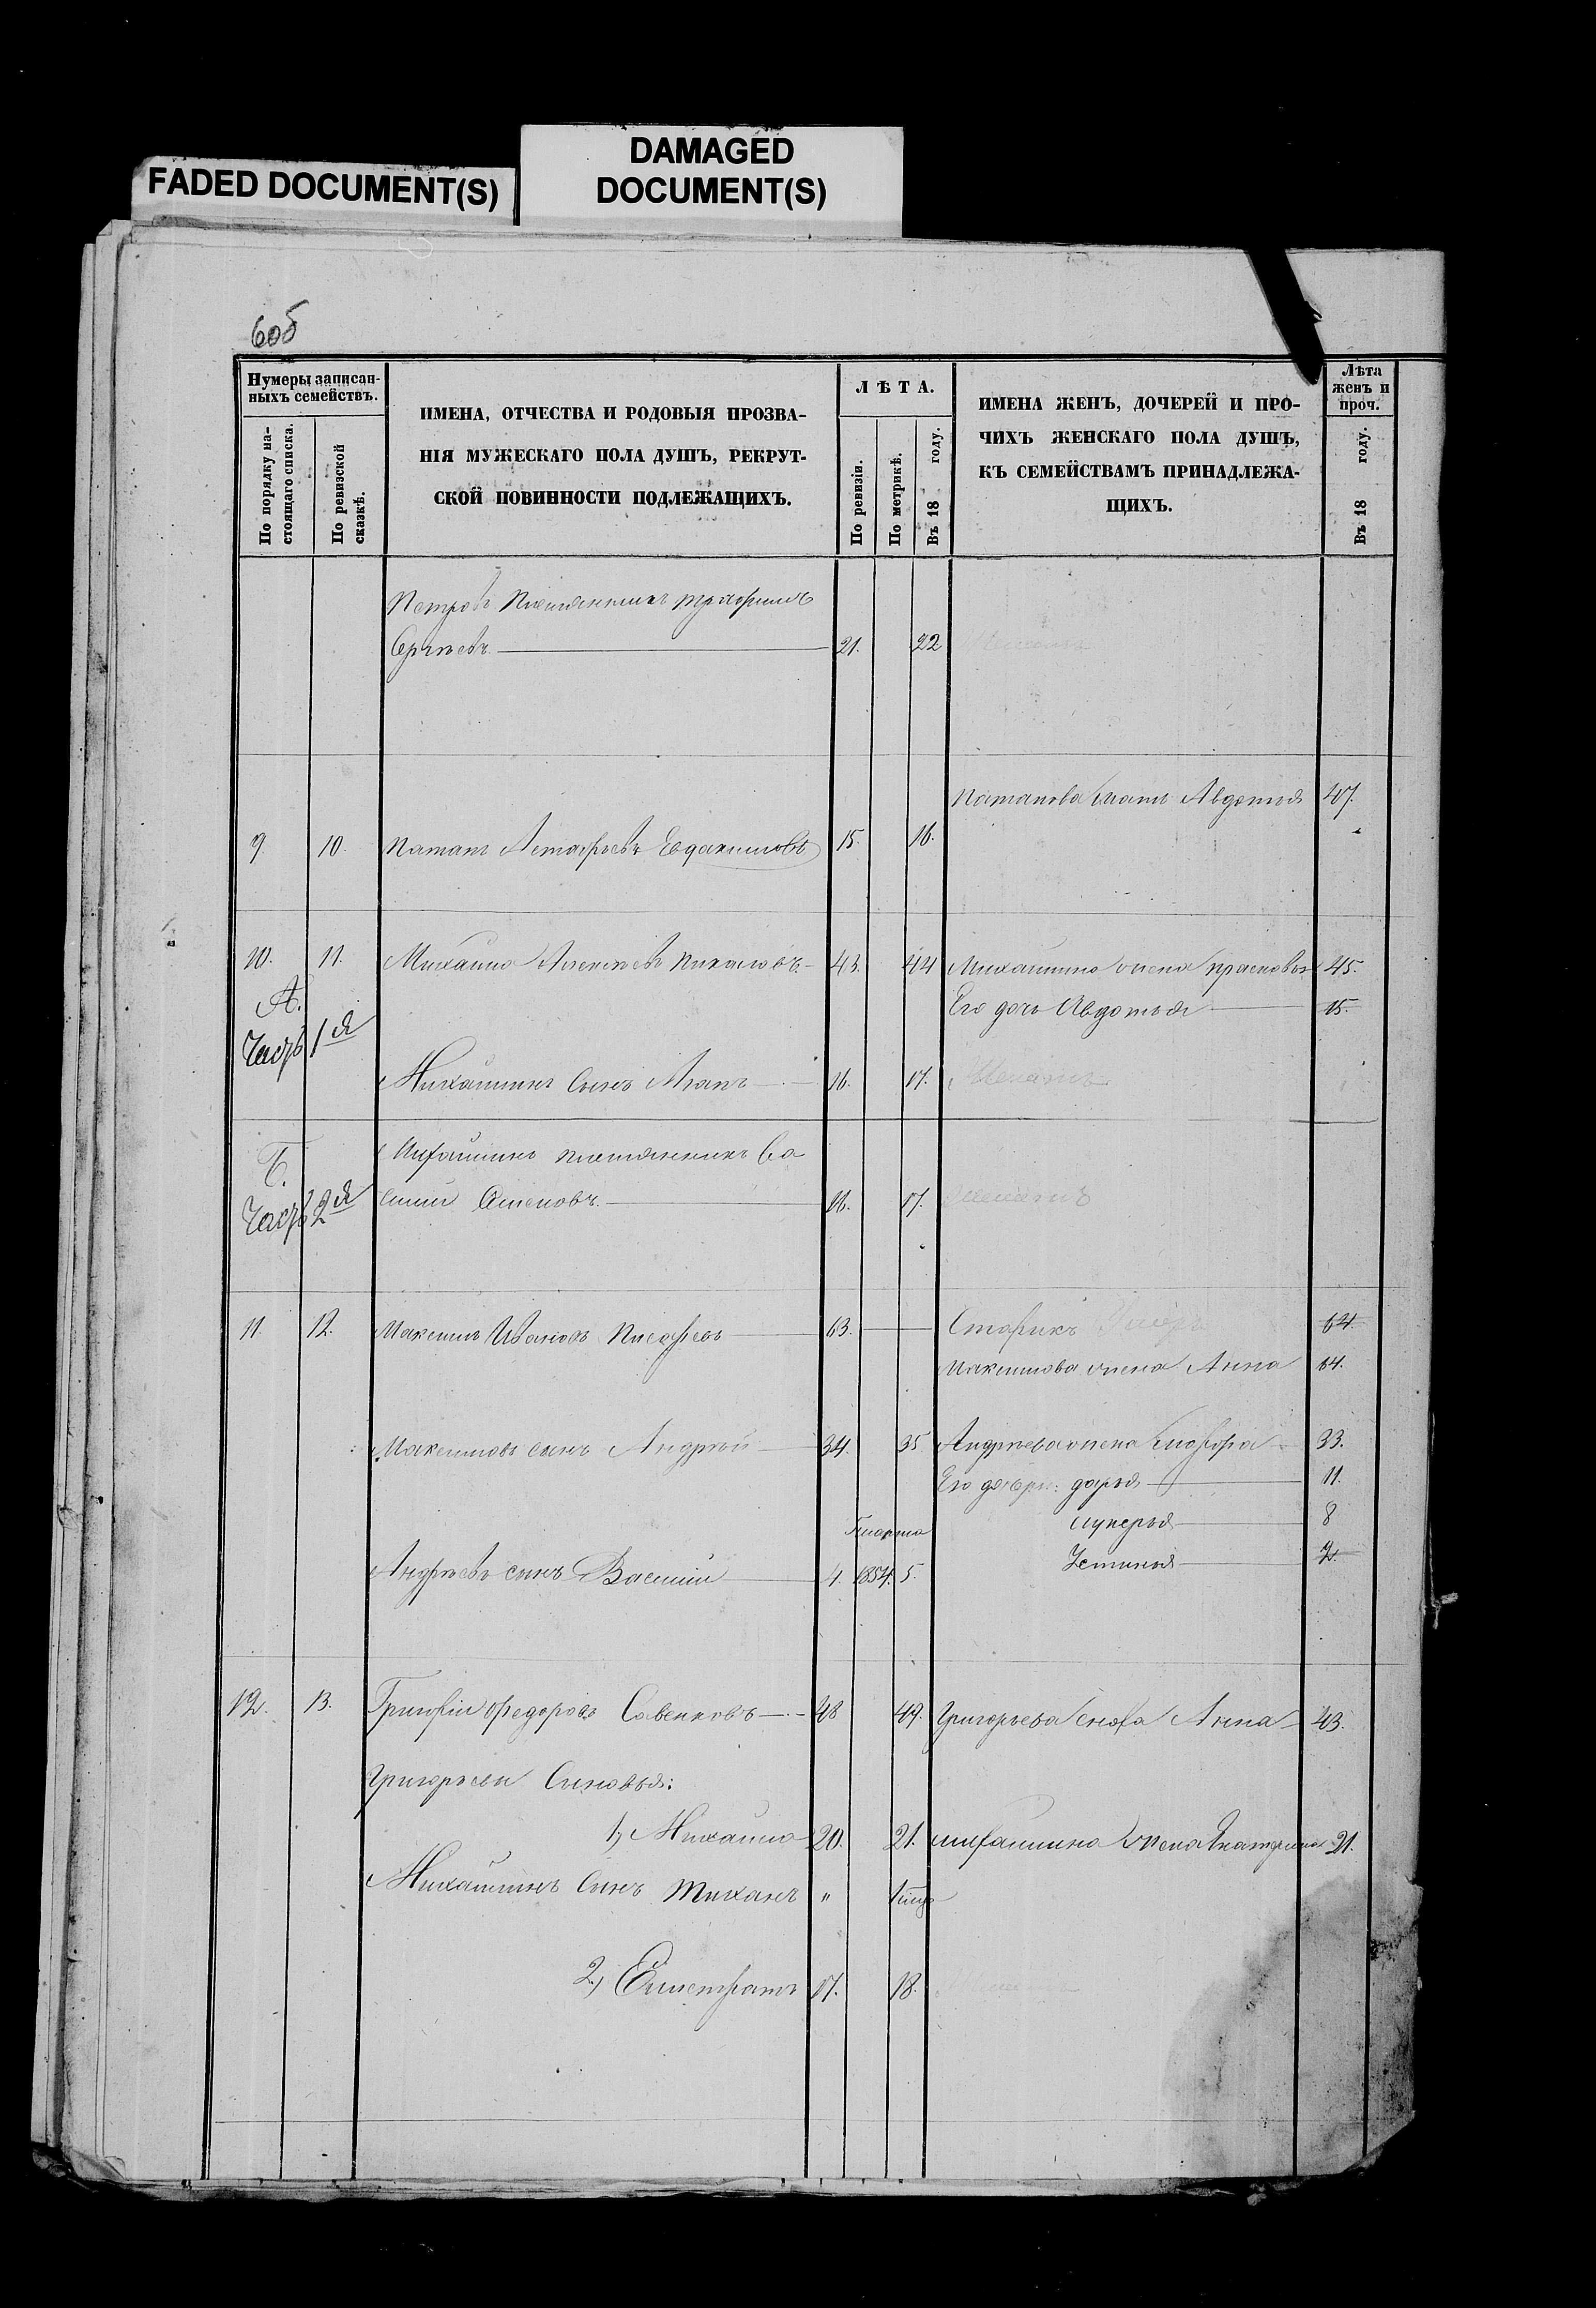 FADED DOCUMENT(S)
DAMAGED
DOCUMENT(S)
60б
Нумеры записан-
ныхъ семействъ.
По порядку на-
стоящаго списка.
По ревизской
сказкѣ.
ИМЕНА, ОТЧЕСТВА И РОДОВЫЯ ПРОЗВА-
НІЯ МУЖЕСКАГО ПОЛА ДУШЪ, РЕКРУТ-
СКОЙ ПОВИННОСТИ ПОДЛЕЖАЩИХЪ.
ЛѢТА.
По ревизіи.
По метрикѣ.
Въ 18 году.
ИМЕНА ЖЕНЪ, ДОЧЕРЕЙ И ПРО-
ЧИХЪ ЖЕНСКАГО ПОЛА ДУШЪ,
КЪ СЕМЕЙСТВАМЪ ПРИНАДЛЕЖА-
ЩИХЪ.
Лѣта
женъ и
проч.
Въ 18 году.
Петровъ племянникъ
Сергѣевъ 21. 22
Патапова мать Авдотья 47.
9 10. Патапъ Астафьевъ Евдакимовъ 15. 16.
10. 11. Михайло Алексѣевъ 43. 44 Михайлина жена прасковья 45.
А. Его дочь Авдотья 15.
Часть 1я
Михайлинъ сынъ 16. 17.
Б. Михайлинъ племянникъ Ва
Часть 2я силий 16. 17.
11 12. Максимъ Ивановъ 63. Старикъ 64.
Максимова жена Анна 64.
Максимовъ сынъ Андрей 34. 35. Андреева жена 33.
Его дочери: дарья 11.
марта лукерья 8
Андреевъ сынъ Василий 4. 1854. 5. Устинья 2.
12. 13. Григорій Федоровъ Савенковъ 48 49. Григорьева сноха Анна 43.
Григорьевы Сыновья:
1, Михайло 20. 21. михайлина жена Екатерина 21.
Михайлинъ Сынъ Тихонъ "
2, Елистратъ 17. 18.